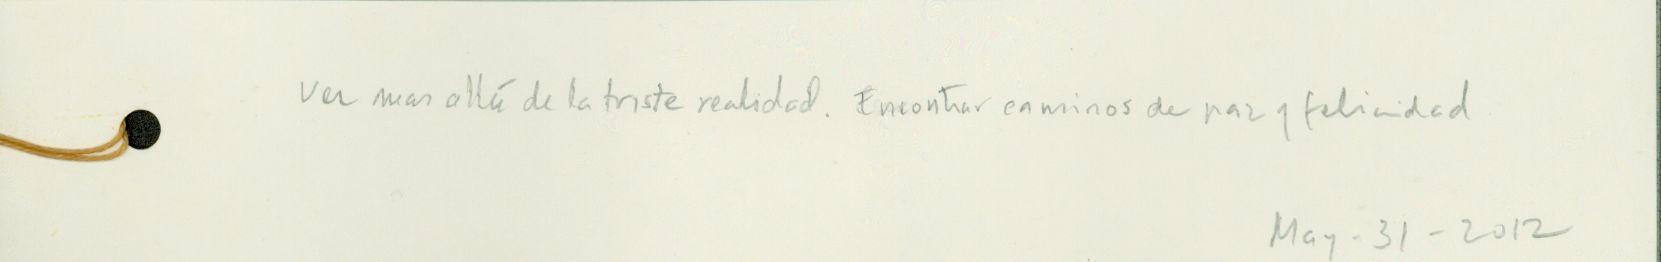 Ver mas allá de la triste realidad. Encontrar caminos de paz y felicidad
May-31-2012